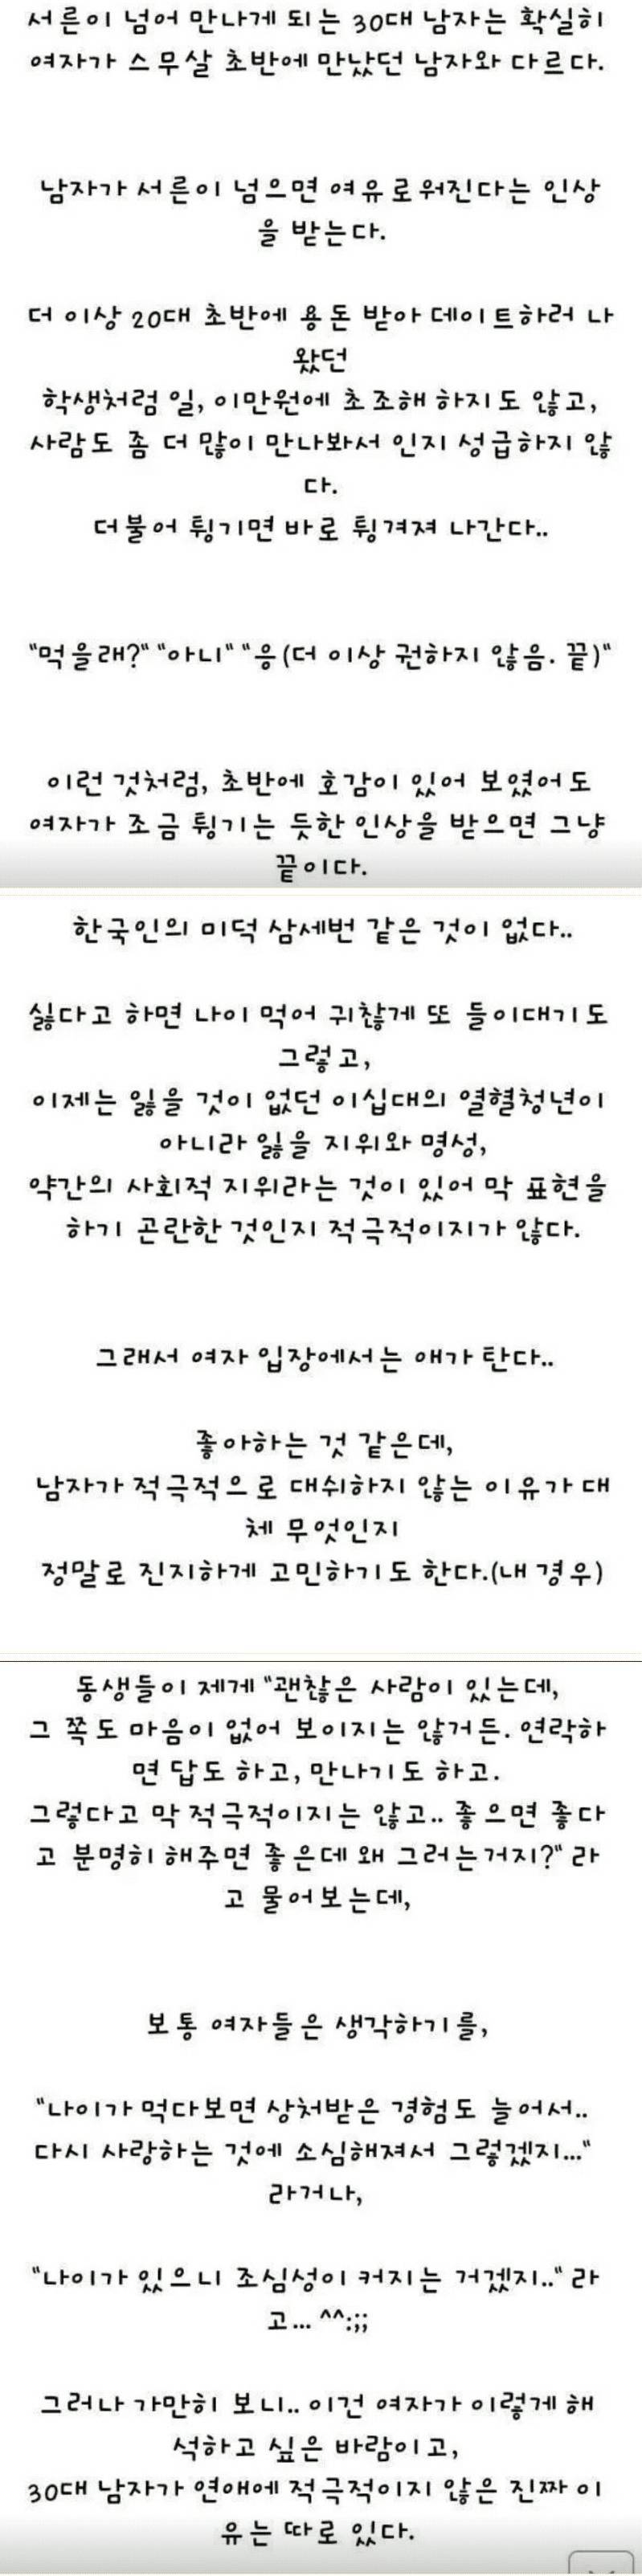 서른이 넘어 만나게 되는 30대 남자는 확실히
여자가 스무살 초반에 만났던 남자와 다르다.
남자가 서른이 넘으면 여유로워진다는 인상
을 받는다.
더 이상 20대 초반에 용돈 받아 데이트하러 나
왔던
학생처럼 일, 이만원에 초조해 하지도 않고,
사람도 좀 더 많이 만나봐서 인지 성급하지 않
다.
더불어 튕기면 바로 튕겨져 나간다..
"먹을래?" "아니" "응(더 이상 권하지 않음. 끝)"
이런 것처럼, 초반에 호감이 있어 보였어도
여자가 조금 튕기는 듯한 인상을 받으면 그냥
끝이다.
한국인의 미덕 삼세번 같은 것이 없다..
싫다고 하면 나이 먹어 귀찮게 또 들이대기도
그렇고,
이제는 잃을 것이 없던 이십대의 열혈청년이
아니라 잃을 지위와 명성,
약간의 사회적 지위라는 것이 있어 막 표현을
하기 곤란한 것인지 적극적이지가 않다.
그래서 여자 입장에서는 애가 탄다..
좋아하는 것 같은데,
남자가 적극적으로 대쉬하지 않는 이유가 대
체 무엇인지
정말로 진지하게 고민하기도 한다.(내 경우)
동생들이 제게 "괜찮은 사람이 있는데,
그 쪽도 마음이 없어 보이지는 않거든. 연락하
면 답도 하고, 만나기도 하고.
그렇다고 막 적극적이지는 않고.. 좋으면 좋다
고 분명히 해주면 좋은데 왜 그러는거지?" 라
고 물어보는데,
보통 여자들은 생각하기를,
"나이가 먹다보면 상처받은 경험도 늘어서..
다시 사랑하는 것에 소심해져서 그렇겠지..."
라거나,
"나이가 있으니 조심성이 커지는 거겠지.." 라
고... ^^:;;
그러나 가만히 보니.. 이건 여자가 이렇게 해
석하고 싶은 바람이고,
30대 남자가 연애에 적극적이지 않은 진짜 이
유는 따로 있다.